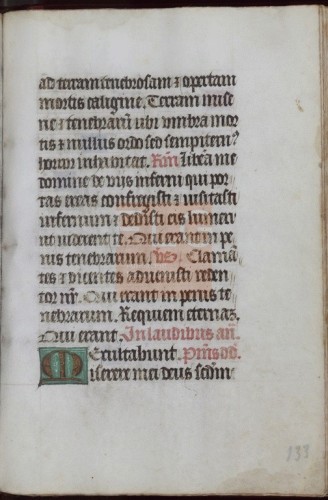 ad terram tenebrosam ⁊ opertam
mortis caligine. Terram mise
rie ⁊ tenebrarũ ubi umbra mor
tis ⁊ nullus ordo sed sempitern9
horror inhabitat. Rm̃ Libera me
domine de viis inferni qui por
tas ereas confregisti ⁊ visitasti
infernum ⁊ dedisti eis lumen
ut viderent te. Qui erant in pe
nis tenebrarum. vs. Claman̄
tes ⁊ dicentes advenisti reden
tor nr̃. Qui erant in penis te
nebrarum. Requiem eternaz.
Qui erant. In laudibus añ.
Exultabunt. Pm̃s dd.
Miserere mei deus scdm̃
133